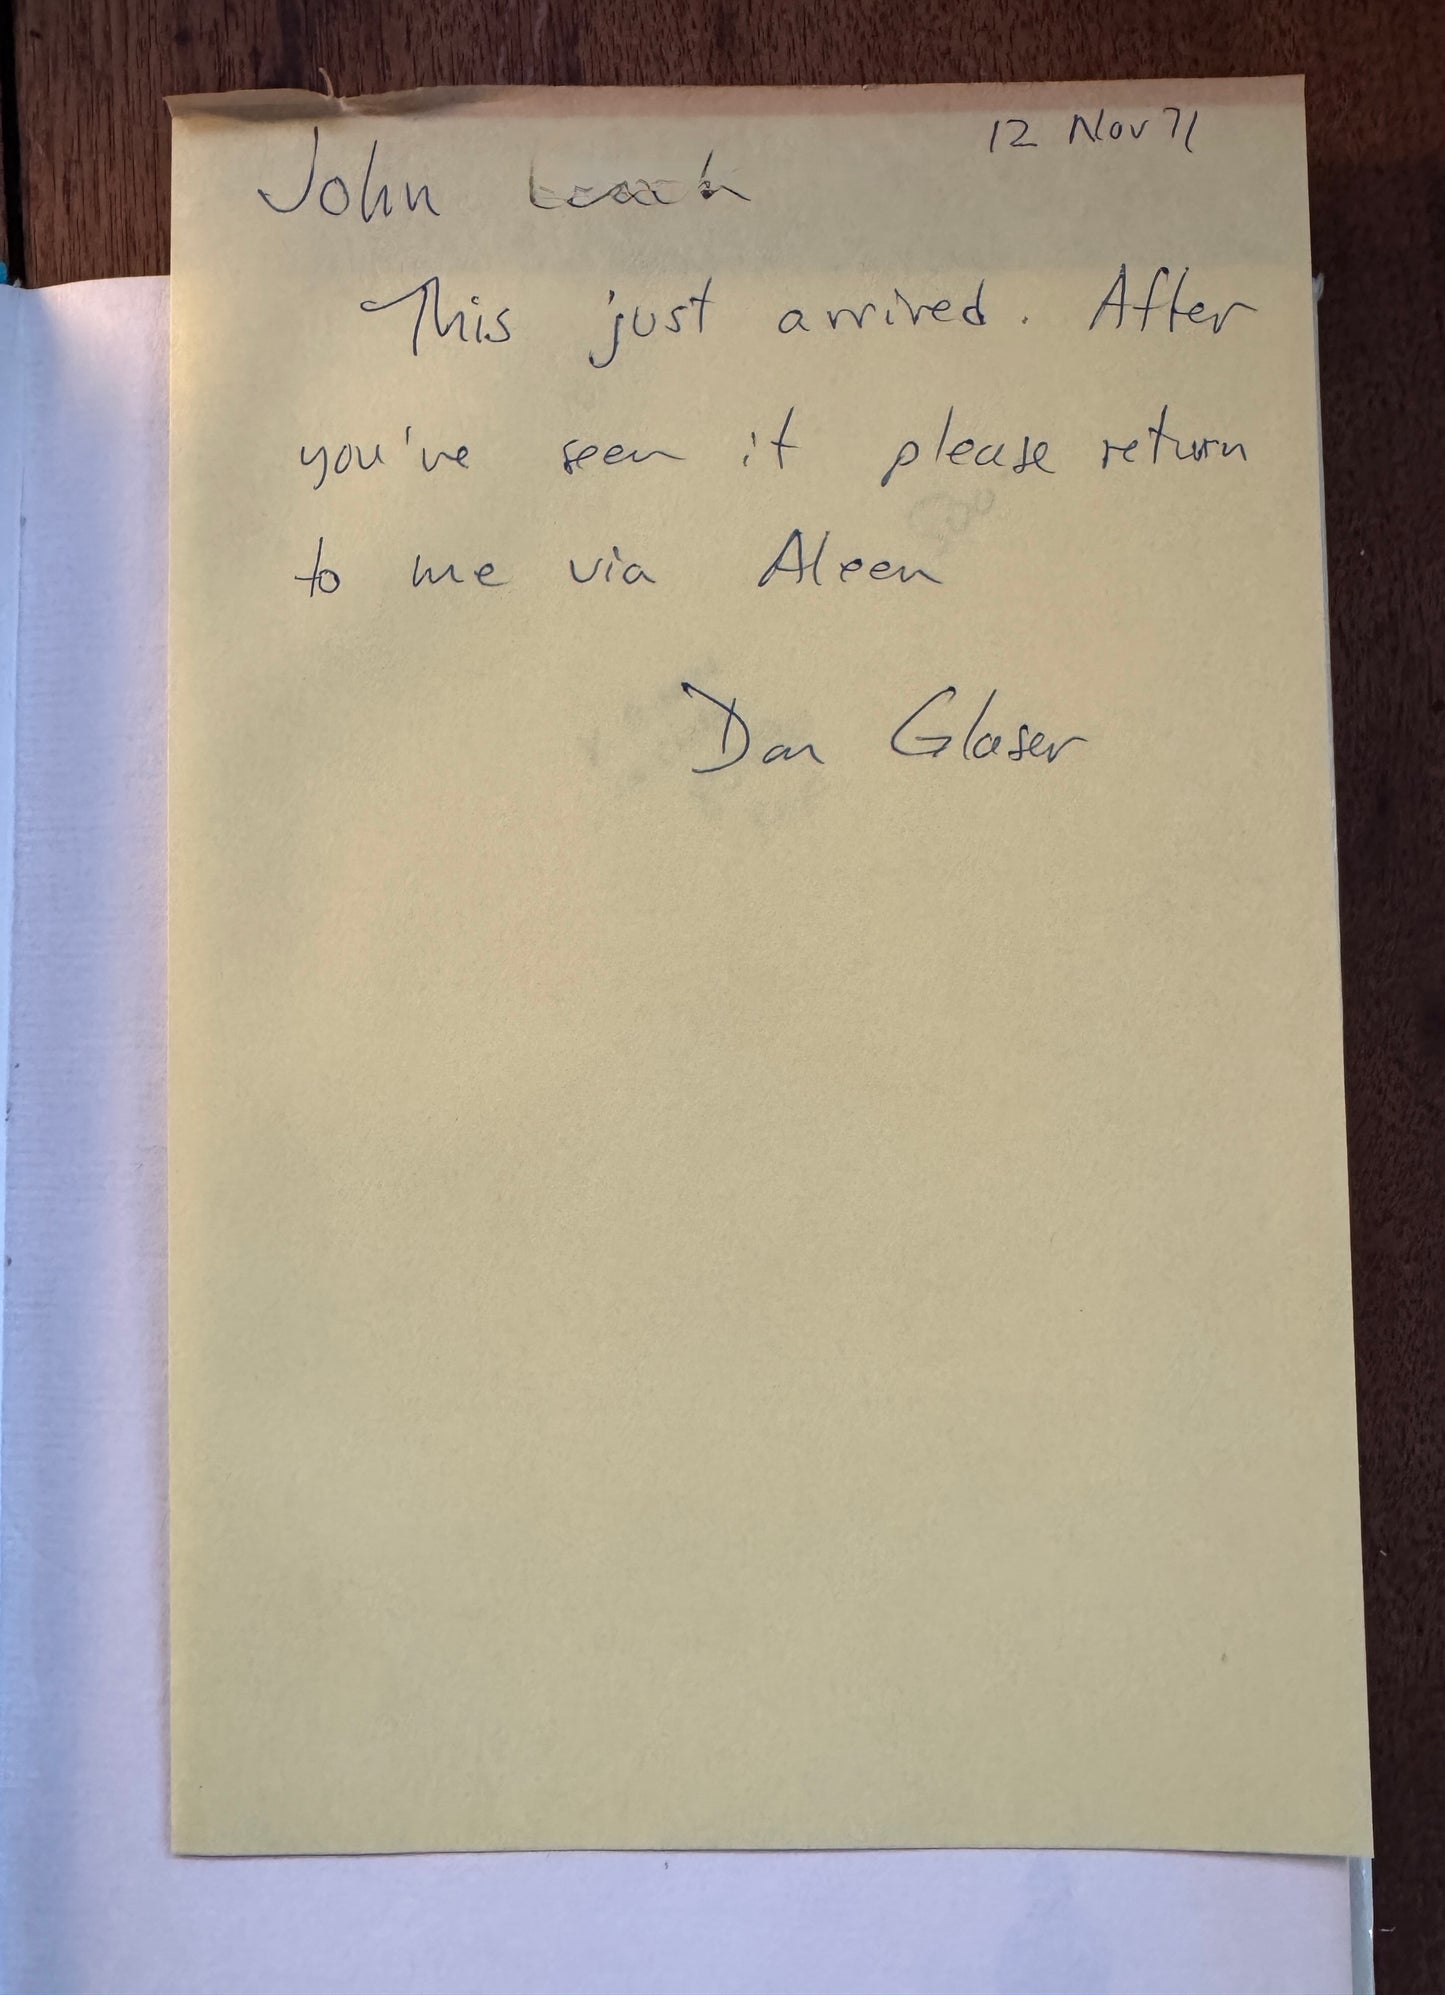 12 Nov 71
John
This just arrived. After
you've seen it please return
to me via Aleen
Don Glaser